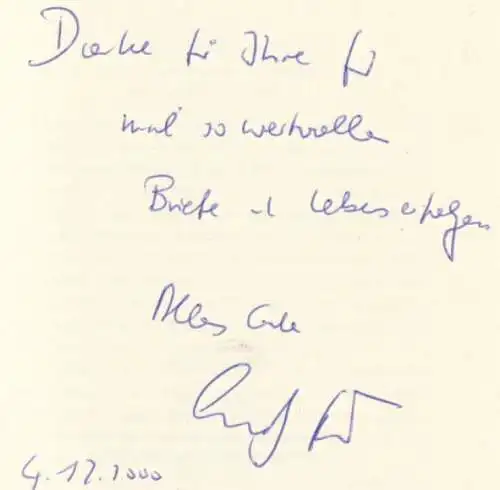 Danke für Ihre für
mich so wertvollen
Briefe und
Alles Gute
4.12.2000